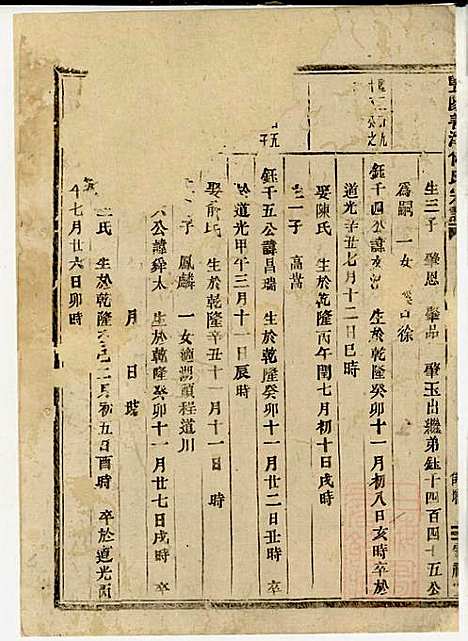 生三子 肇恩 肇品 肇玉出繼弟鈺千四百四十五公
爲嗣 一女 徐
鈺千四公諱 生於乾隆癸卯十一月初八日亥時卒於
道光辛丑七月十二日巳時
娶陳氏 生於乾隆丙午閏七月初十日戌時
生一子 高嵩
鈺千五公諱昌瑞 生於乾隆癸卯十一月廿二日丑時
於道光甲午三月十一日辰時
娶俞氏 生於乾隆辛丑十一月十一日 時
子 鳳麟 一女 湖頭程道川
公諱舜太 生於乾隆癸卯十一月廿七日戌時 卒
月 日 時
氏 生於乾隆 巳二月初五日酉時 卒於道光丙
午七月廿六日卯時